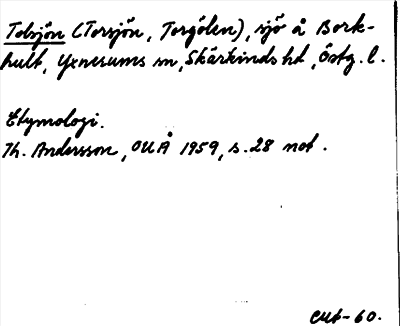 Tolsjön (Torsjön, Torgölen), sjö å Bork-
hult, Yxnerums sn, Skärkinds hd, Östg. l.
Etymologi.
Th. Andersson, OUÅ 1959, s. 28 not.
CMt-60.